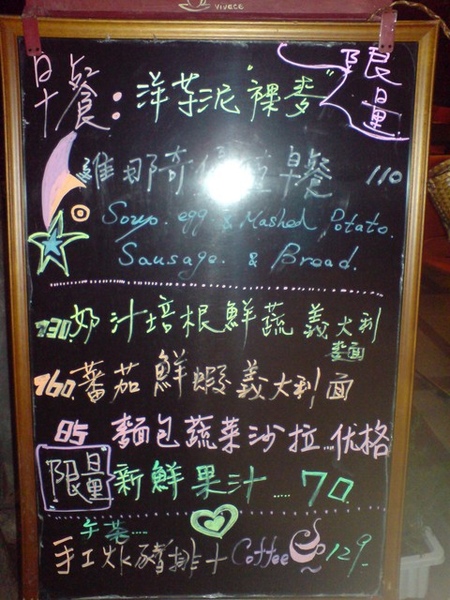 vivace
早餐：洋芋泥"裸麥" 限量
維那奇優值早餐 110
Soup. egg & Mashed Potato.
Sausage. & Bread.
奶汁培根鮮蔬義大利
麵
160. 蕃茄鮮蝦義大利面
85 麵包蔬菜沙拉...优格
限量 新鮮果汁.....70
午茶....
手工炸豬排+Coffee 129